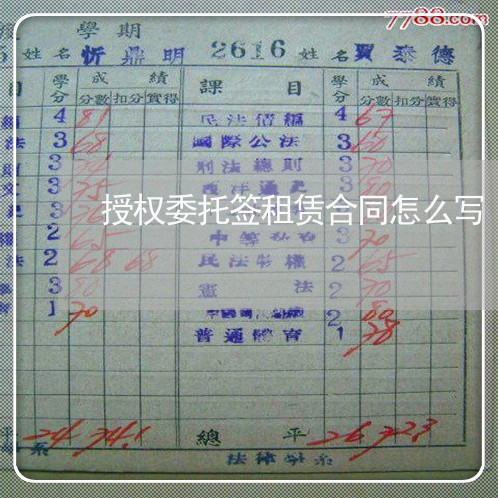 7788.com
學期
姓名 忻鼎明 2616 姓名 賈泰德
目 學分 成績 課目 學分 成績
分數 扣分 實得 分數 扣分 實得
4 81 民法債編 4 67
法 3 68 國際公法 3 60
3 刑法總則 3 70
3 75 西洋通史 3 80
授权委托签租赁合同怎么写
2 65 3 70
法 2 68 68 民法物權 2 65
3 80 憲法 2 70
育 1 70 2 80
普通體育 1 78
平 24 74.1 總平 26 72.3
系 法律學系